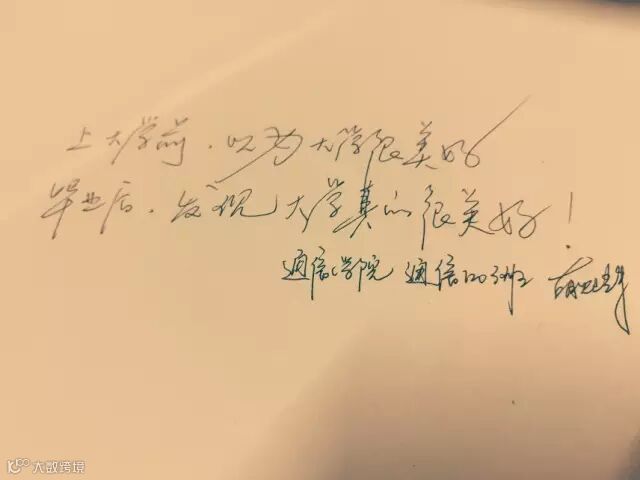 上大学前，以为大学很美好
毕业后，发现大学真的很美好！
通信学院 通信1203班
大数跨境